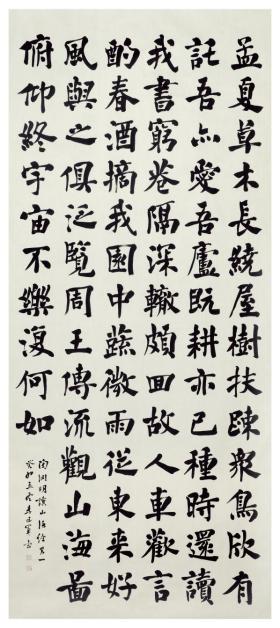 孟夏草木長繞屋樹扶踈衆鳥欣有
託吾亦愛吾廬既耕亦已種時還讀
我書窮巷隔深轍頗回故人車歡言
酌春酒摘我園中蔬微雨從東來好
風與之俱泛覽周王傳流觀山海圖
俯仰終宇宙不樂復何如
陶淵明讀山海經其一
癸卯